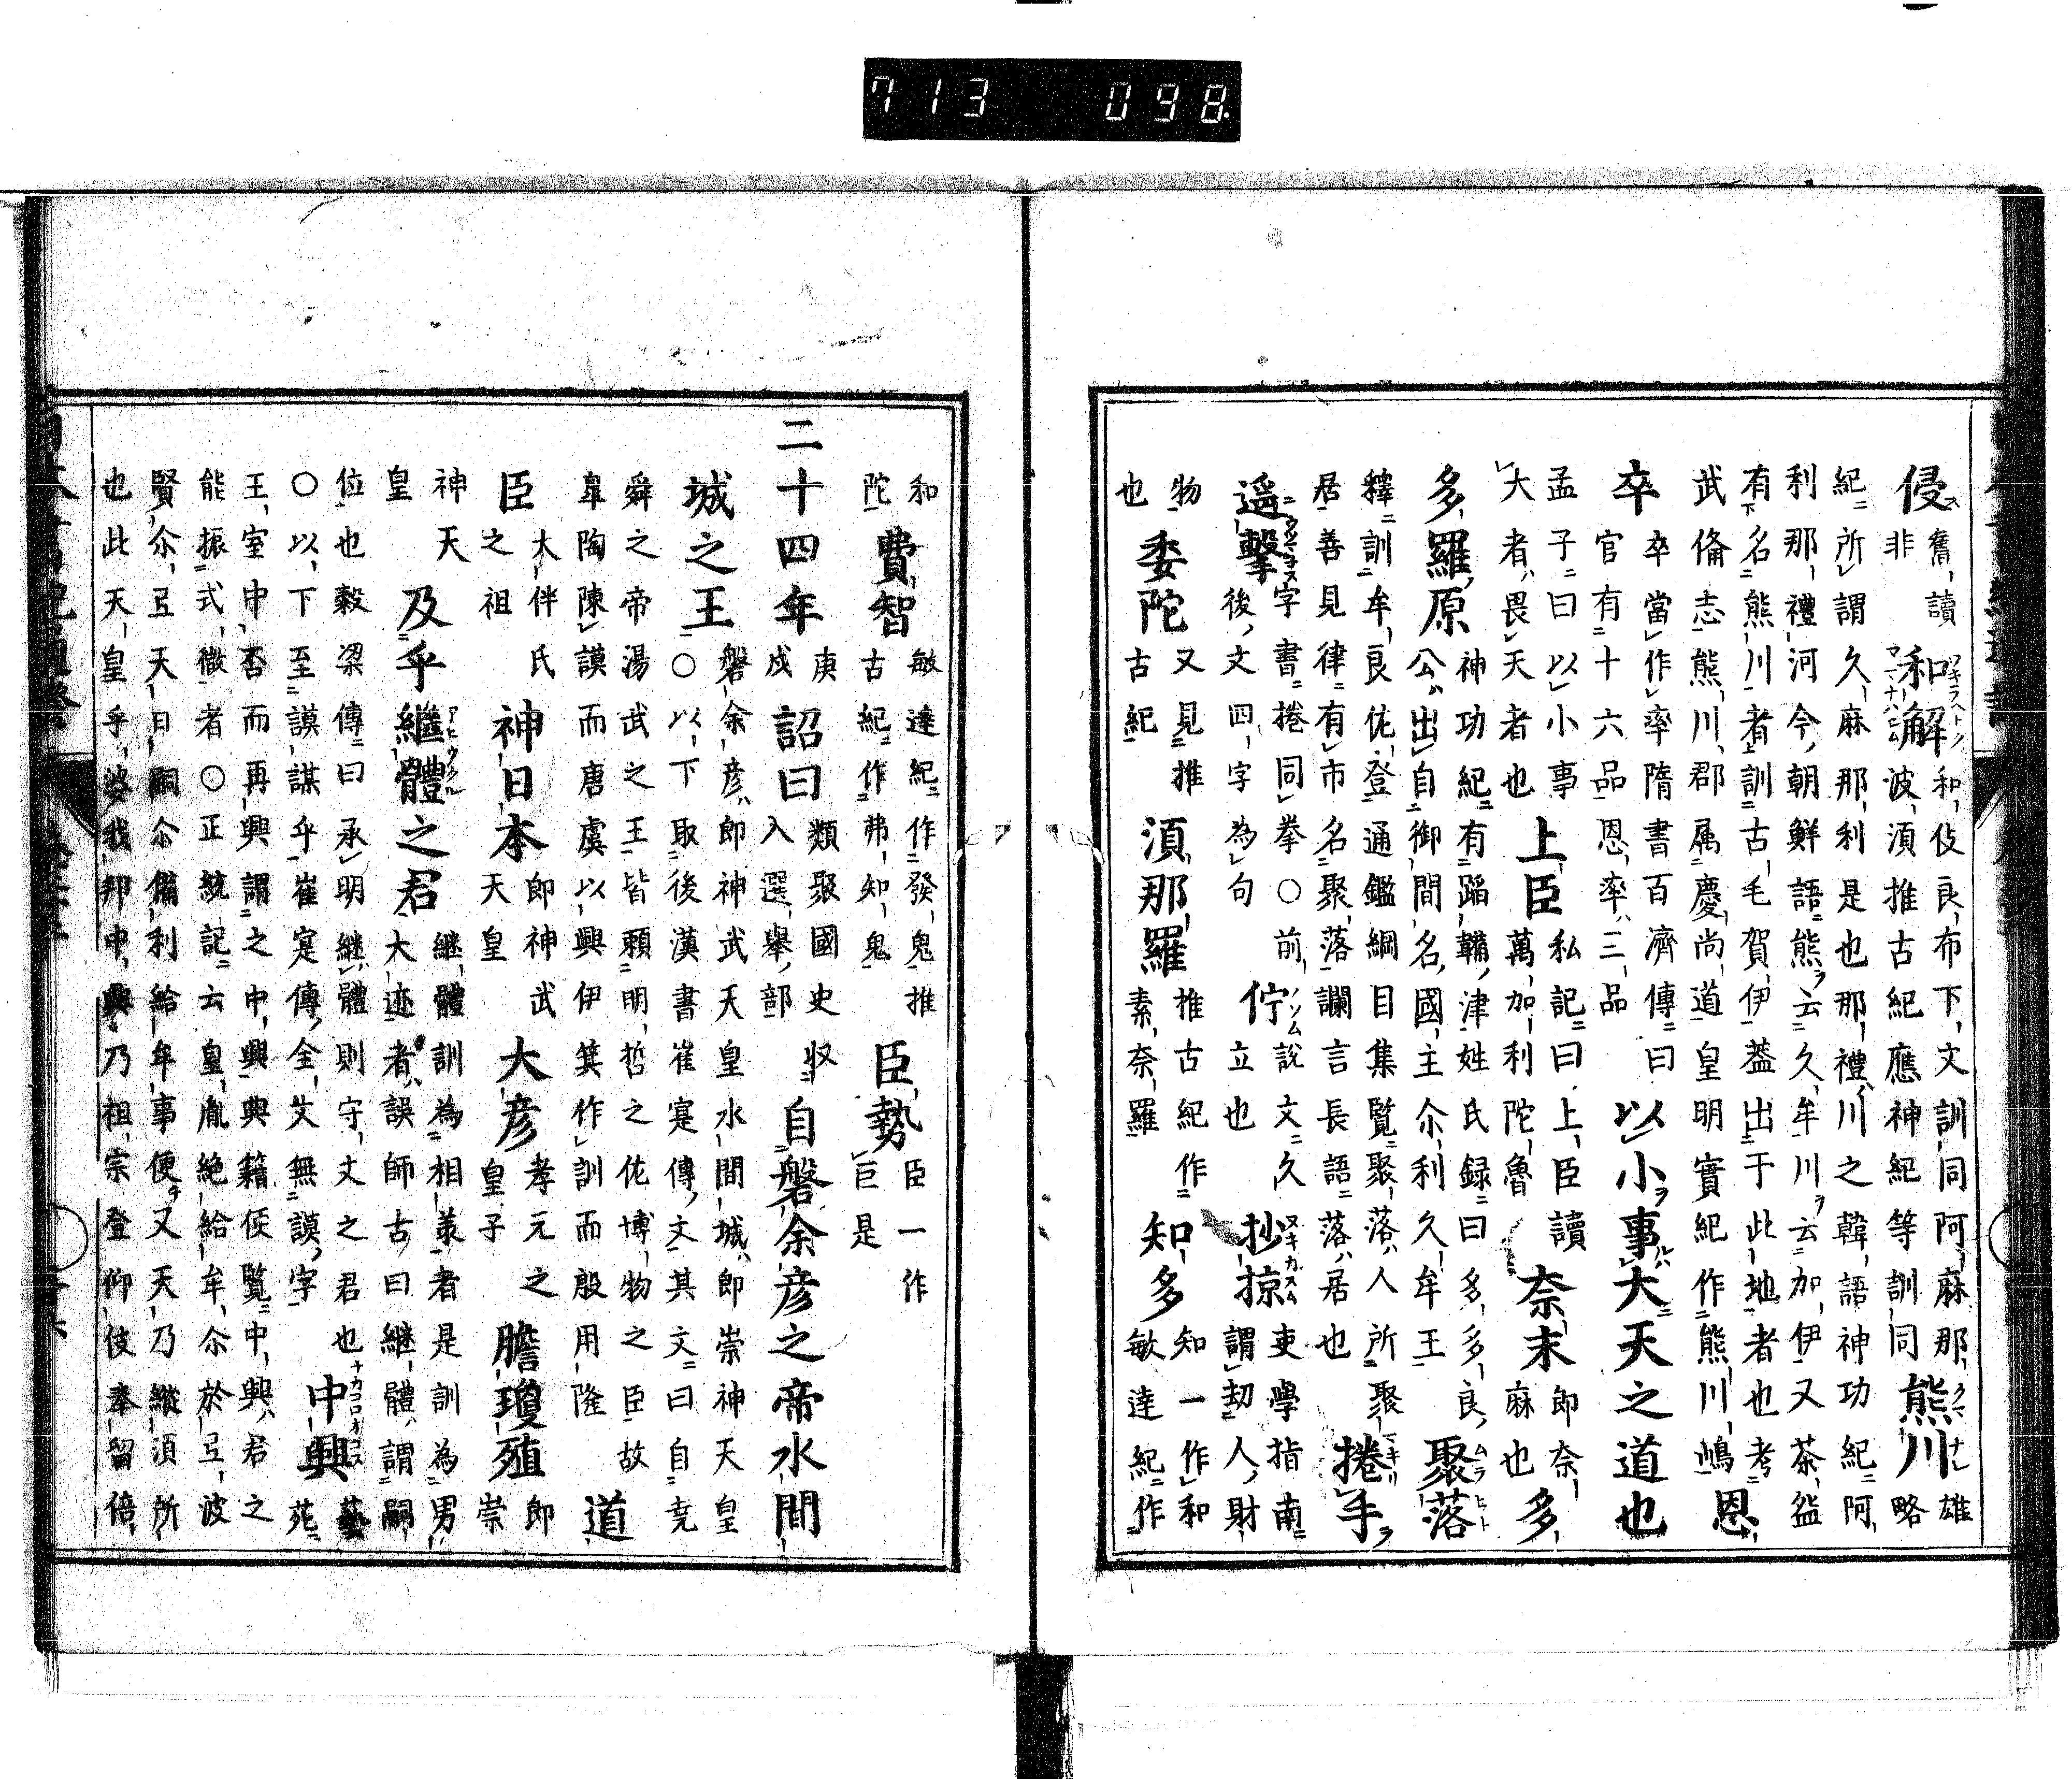 侵奮讀非和解和伎良布下文訓同阿麻那波湏推古紀應神紀等訓同熊川雄略
紀所謂久麻那利是也那禮川之韓語神功紀阿
利那禮河今朝鮮語熊云久牟川云加伊又茶盌
有名熊川者訓古毛賀伊蓋出于此地者也考
武倫志熊川郡属慶尚道皇明實紀作熊川嶋恩
卒卒當作率隋書百濟傳曰官有十六品恩率三品以小事大天之道也
孟子曰以小事大者畏天者也上臣私記曰上臣讀萬加利陀魯奈末即奈麻也多
多羅原神功紀有蹈鞴津姓氏録曰多多良公出自御間名國主尒利久牟王聚落
釋訓牟良佐登通鑑綱目集覧聚落人所聚居善見律有市名聚落讕言長語落居也捲手
遥擊字書捲同拳○前後文四字為句佇説文久立也抄掠吏學指南謂劫人財
物也委陀又見推古紀湏那羅推古紀作素奈羅知多知一作和敏達紀作
和陀費智敏達紀作發鬼推古紀作弗知鬼臣勢臣一作巨是
二十四年庚戌詔曰類聚國史収入選舉部自磐余彦之帝水間
城之王磐余彦即神武天皇水間城即崇神天皇○以下取後漢書崔寔傳文其文曰自堯
舜之帝湯武之王皆頼明哲之佐博物之臣故皐陶陳謨而唐虞以興伊箕作訓而殷用隆道
臣大伴氏之祖神日本即神武天皇大彦孝元之皇子膽瓊殖即崇
神天皇及乎繼體之君継體訓為相義者是訓為男大迹者誤師古曰継體謂嗣
位也穀梁傳曰承明継體則守文之君也○以下至謨謀乎崔寔傳全文無謨字中興藝苑
王室中否而再興謂之中興典籍便覧中興君之
能振式微者○正統記云皇胤絶給牟尒於弖波
賢尒弖天日嗣尒備利給牟事便又天乃縱湏所
也此天皇乎婆我邦中興乃祖宗登仰伎奉留倍
713 098